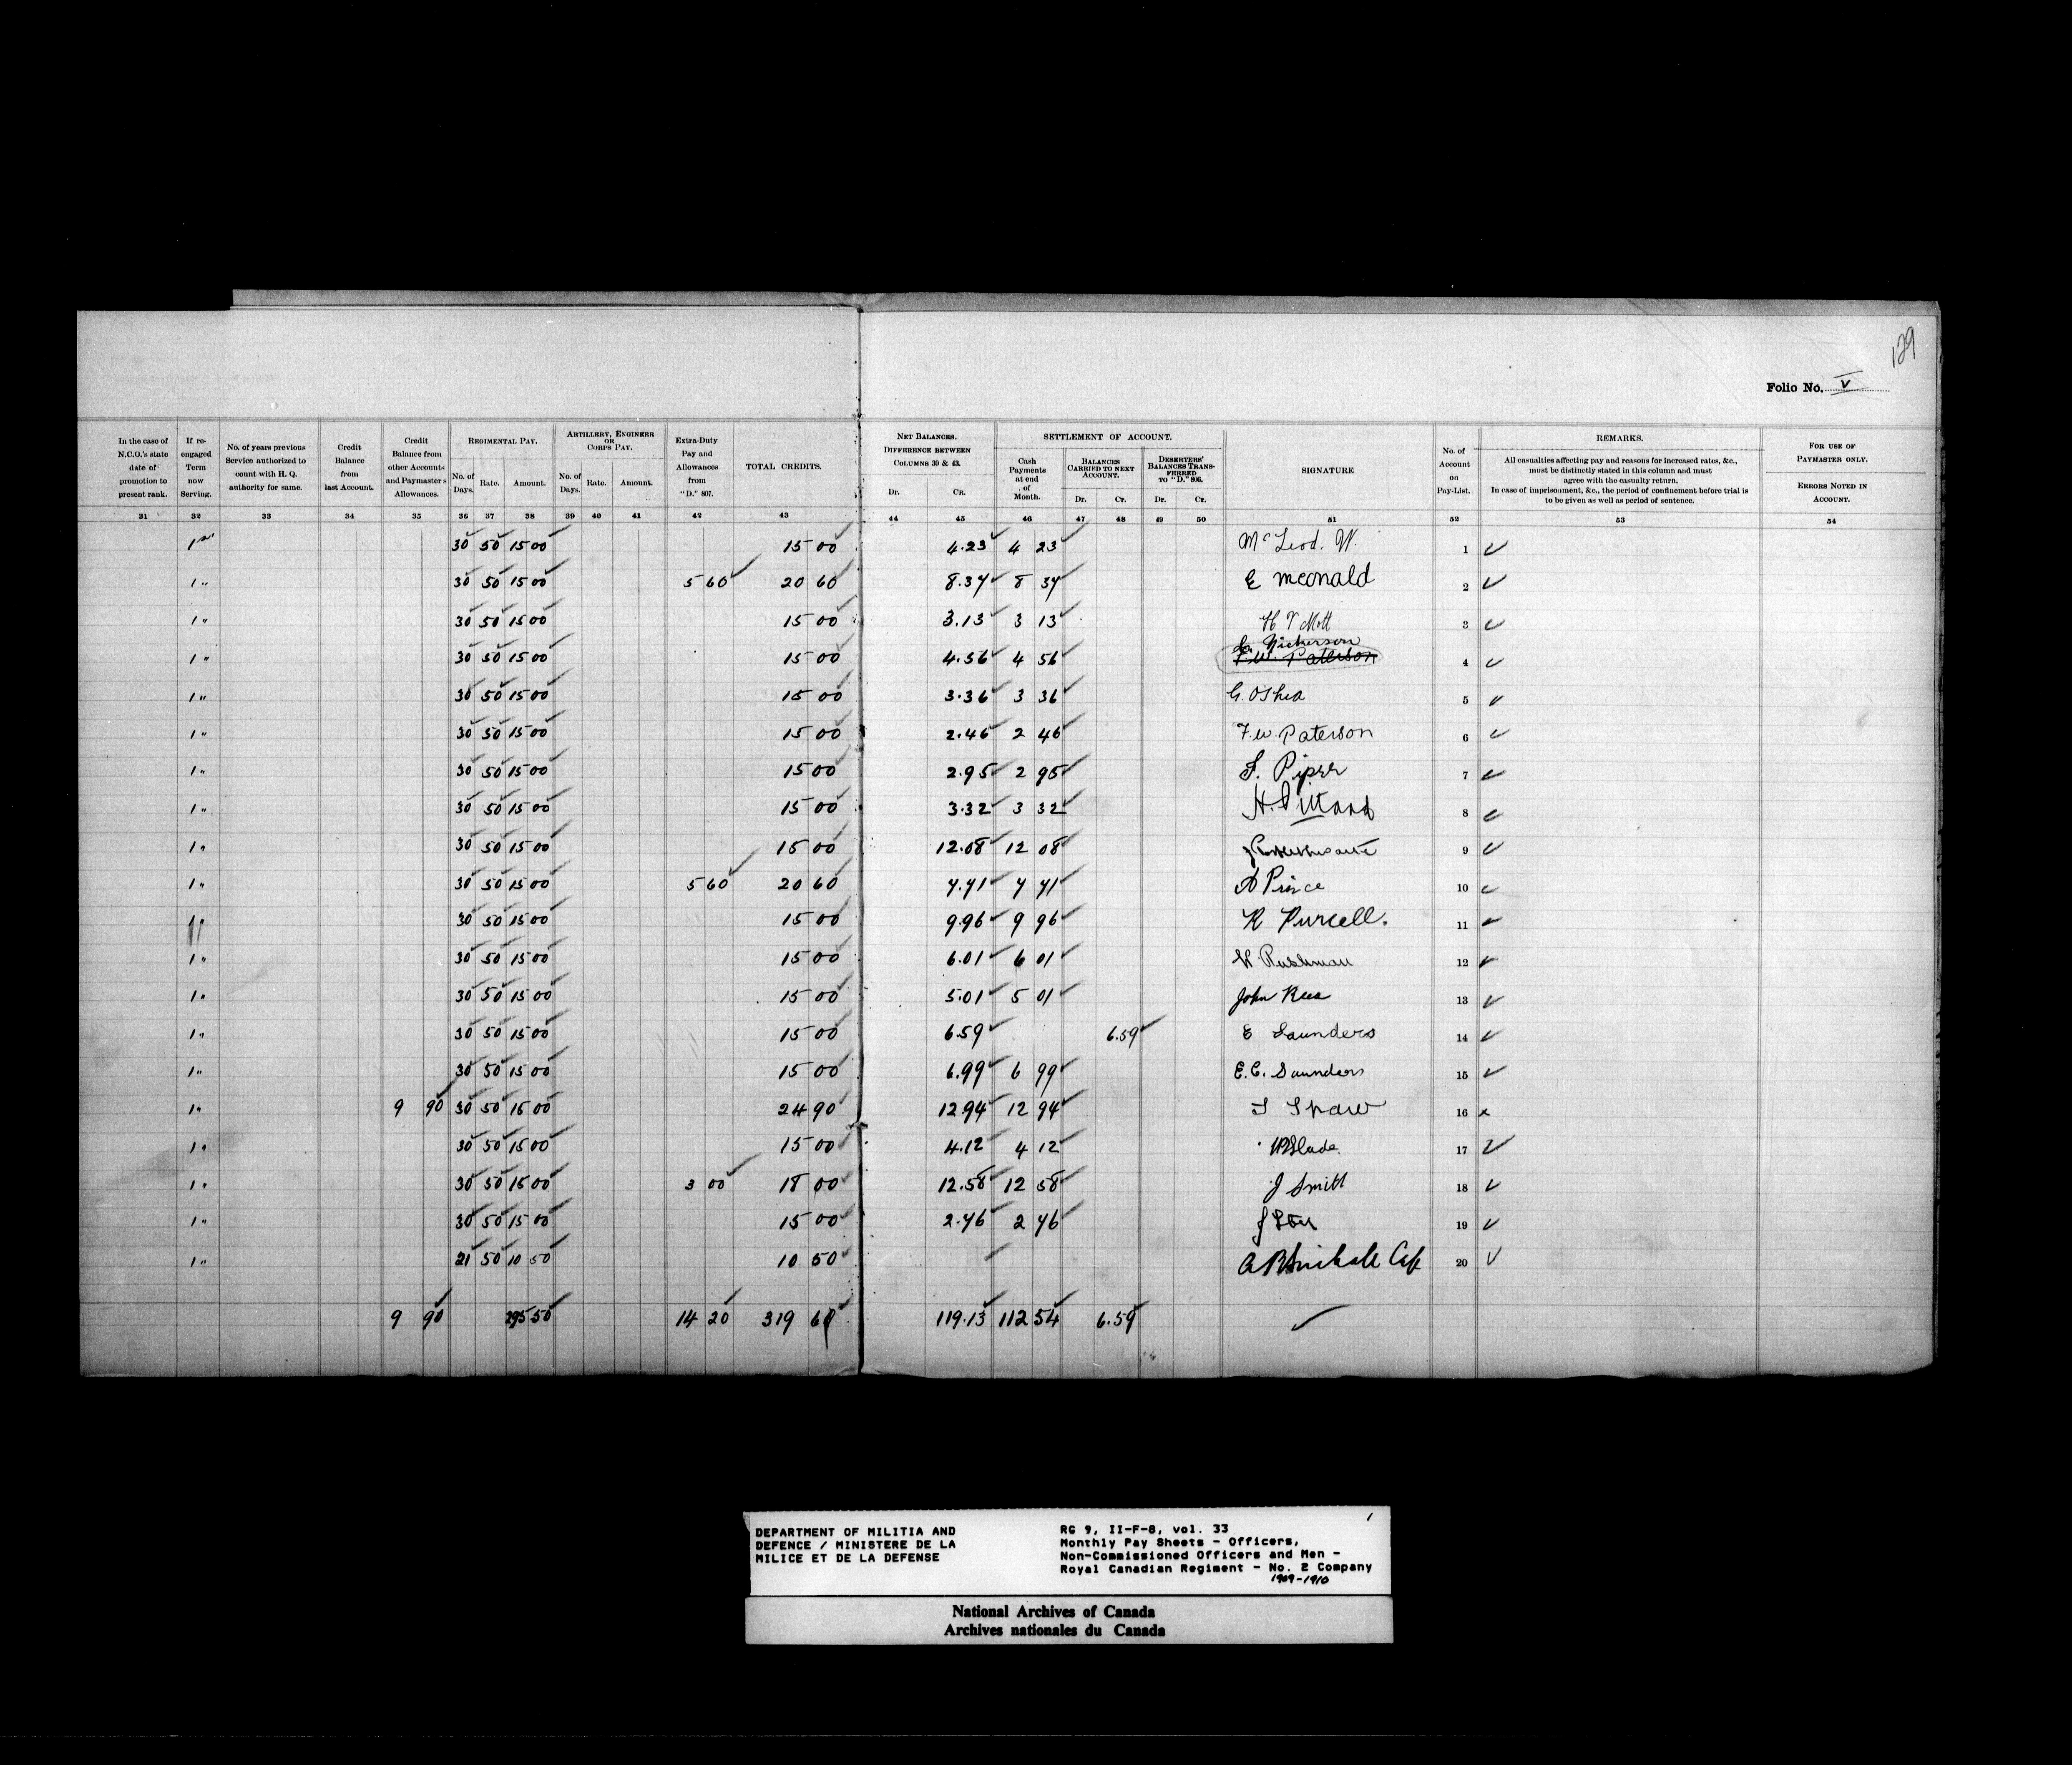 129
Folio No. V
In the case of N.C.O.'s state date of promotion to present rank.
If re-engaged Term now Serving.
No. of years previous Service authorized to count with H. Q. authority for same.
Credit Balance from last Account.
Credit Balance from other Accounts and Paymaster s Allowances.
REGIMENTAL PAY.
No. of Days. Rate. Amount.
ARTILLERY, ENGINEER OR CORPS PAY.
No. of Days. Rate. Amount.
Extra-Duty Pay and Allowances from "D." 807.
TOTAL CREDITS.
NET BALANCES. DIFFERENCE BETWEEN COLUMNS 30 & 43.
Dr. Cr.
SETTLEMENT OF ACCOUNT.
Cash Payments at end of Month.
BALANCES CARRIED TO NEXT ACCOUNT.
Dr. Cr.
DESERTERS' BALANCES TRANSFERRED TO "D." 806.
Dr. Cr.
SIGNATURE
No. of Account on Pay-List.
REMARKS.
All casualties affecting pay and reasons for increased rates, &c., must be distinctly stated in this column and must agree with the casualty return.
In case of imprisonment, &c., the period of confinement before trial is to be given as well as period of sentence.
FOR USE OF PAYMASTER ONLY.
ERRORS NOTED IN ACCOUNT.
31 32 33 34 35 36 37 38 39 40 41 42 43 44 45 46 47 48 49 50 51 52 53 54
1st 30 50 15 00 15 00 4.23 4 23 McLeod. W. 1
1 " 30 50 15 00 5 60 20 60 8.34 8 34 E mconald 2
1 " 30 50 15 00 15 00 3.13 3 13 H T Mott 3
1 " 30 50 15 00 15 00 4.56 4 56 Nickerson F.W. Paterson 4
1 " 30 50 15 00 15 00 3.36 3 36 G. OShea 5
1 " 30 50 15 00 15 00 2.46 2 46 F.W. Paterson 6
1 " 30 50 15 00 15 00 2.95 2 95 Piper 7
1 " 30 50 15 00 15 00 3.32 3 32 H. Pittard 8
1 " 30 50 15 00 15 00 12.08 12 08 9
1 " 30 50 15 00 5 60 20 60 4.41 4 41 A Prince 10
30 50 15 00 15 00 9.96 9 96 R Purcell. 11
1 " 30 50 15 00 15 00 6.01 6 01 W Rushman 12
1 " 30 50 15 00 15 00 5.01 5 01 John Rees 13
1 " 30 50 15 00 15 00 6.59 6.59 E Saunders 14
1 " 30 50 15 00 15 00 6.99 6 99 E.C. Saunders 15
1 " 9 90 30 50 15 00 24 90 12.94 12 94 Shaw 16
1 " 30 50 15 00 15 00 4.12 4 12 Slade 17
1 " 30 50 15 00 3 00 18 00 12.58 12 58 J Smith 18
1 " 30 50 15 00 15 00 2.46 2 46 J 19
1 " 21 50 10 50 10 50 20
9 90 295 50 14 20 319 60 119.13 112 54 6.59
1
DEPARTMENT OF MILITIA AND
DEFENCE / MINISTERE DE LA
MILICE ET DE LA DEFENSE
RG 9, II-F-8, vol. 33
Monthly Pay Sheets - Officers,
Non-Commissioned Officers and Men -
Royal Canadian Regiment - No. 2 Company
1909-1910
National Archives of Canada
Archives nationales du Canada